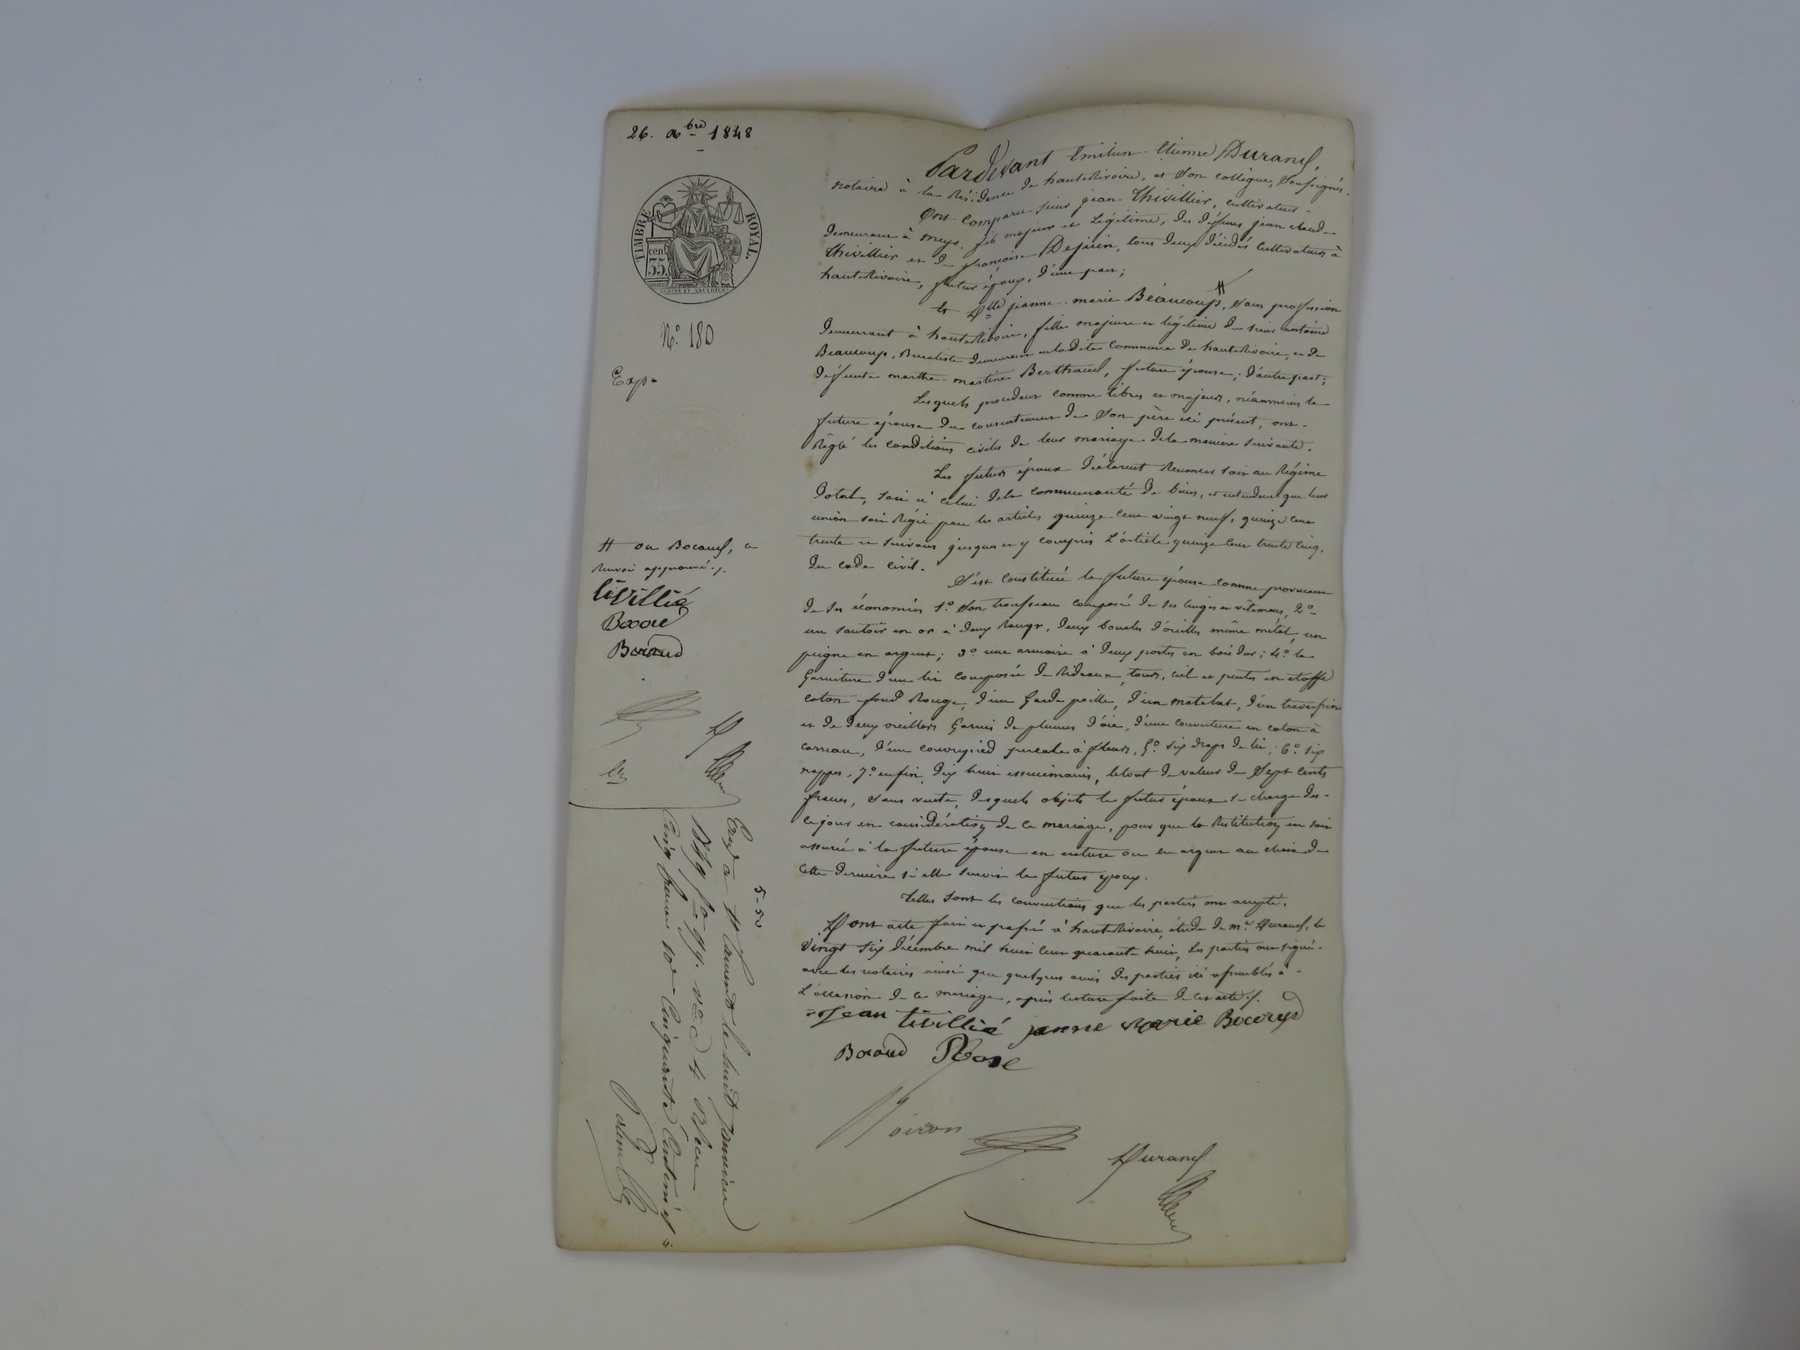 26. Xbre 1848
TIMBRE ROYAL.
cen. 35.
N.° 180
Exp.
Pardevant Emilien Etienne Durand,
notaire à la Résidence de hauteRivoire, et Son collègue, Soussignés.
Ont comparu sieur jean Thivillier, cultivateur
demeurant à meys, fils majeur et Légitime, des défunts jean claude
Thivillier et de françoise Dejoin, tous deux décédés cultivateurs à
hauteRivoire, futur époux, d'une part;
et Dlle jeanne-marie Beaucoup, # sans profession
demeurant à hauteRivoire, fille majeure et légitime du sieur antoine
Beaucoup, Buraliste demeurant en ladite commune de hauteRivoire, et de
défunte marthe-martine Berthaud, future épouse; d'autre part;
Lesquels procédant comme libres et majeurs, néanmoins la
future épouse du consentement de Son père ici présent, ont
Réglé les conditions civiles de leur mariage de la manière suivante.
Les futurs époux déclarent Renoncer soit au Régime
Dotal, soit à celui de la communauté de biens, et entendent que leur
union soit Régie par les articles quinze cent vingt neuf, quinze cent
trente et suivans jusques et y compris L'article quinze cent trente cinq,
du code civil.
S'est constituée la future épouse comme provenant
de ses économies 1.° Son trousseau composé de ses linges et vêtemens, 2.°
un sautoir en or à deux Rangs, deux boucles d'oreilles même métal, un
peigne en argent; 3.° une armoire à deux portes en bois dur; 4.° la
Garniture d'un lit composée de Rideaux, tours, ciel et pentes en étoffe
coton fond Rouge, d'un Garde paille, d'un matelat, d'un traversin
et de deux oreillers Garnis de plumes d'oie, d'une couverture en coton à
carreau, d'un couvrepied percale à fleurs, 5.° six draps de lit, 6.° six
nappes, 7.° enfin, dix huit essuiemains, le tout de valeur de Sept cents
francs, sans vente, desquels objets le futur époux se charge dès
ce jour en considération de ce mariage, pour que la Restitution en soit
assurée à la future épouse en nature ou en argent au choix de
cette dernière si elle survit le futur époux.
Telles sont les conventions que les parties ont accepté.
Dont acte fait et passé à hauteRivoire, étude de me. Durand, le
vingt six décembre mil huit cent quarante huit, les parties ont signé
avec les notaires ainsi que quelques amis des parties ici assemblés à
L'occasion de ce mariage, après lecture faite de cet acte./.
jean tivillié janne marie Bocoryd
Boraud Rose
Noiron
Durand
# ou Bocaud, ce
Renvoi approuvé./.
tivillié
Boraud
5-50
Enr. à St Laurent le huit janvier
1849 fo 99. vo c. 4 Reçu
cinq francs 10e cinquante centimes